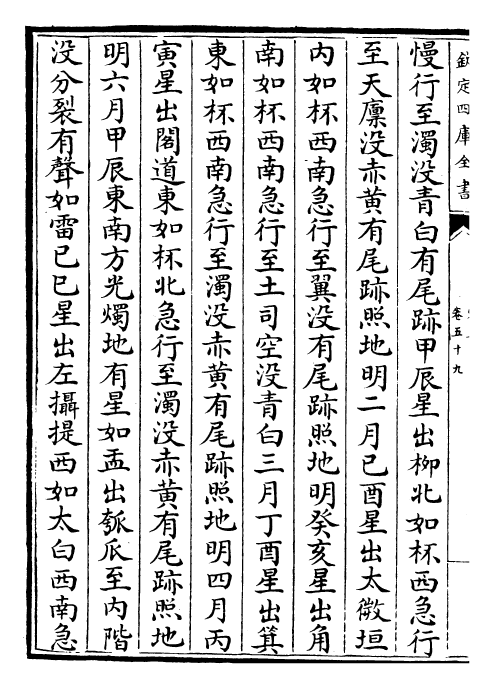 欽定四庫全書
卷五十九
慢行至濁没青白有尾跡甲辰星出柳北如杯西急行
至天廪没赤黄有尾跡照地明二月已酉星出太微垣
内如杯西南急行至翼没有尾跡照地明癸亥星出角
南如杯西南急行至土司空没青白三月丁酉星出箕
東如杯西南急行至濁没赤黄有尾跡照地明四月丙
寅星出閣道東如杯北急行至濁没赤黄有尾跡照地
明六月甲辰東南方光燭地有星如盂出瓠瓜至内階
没分裂有聲如雷已巳星出左攝提西如太白西南急